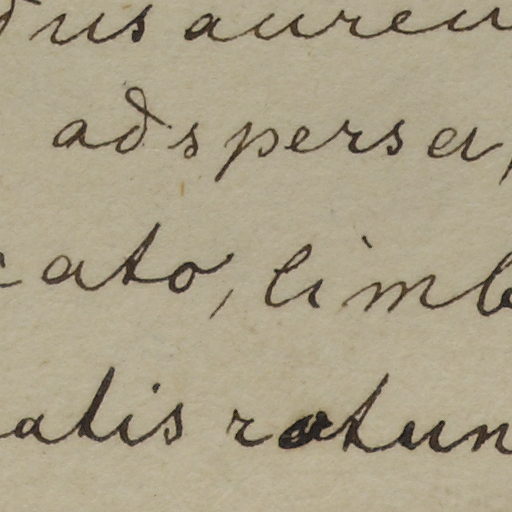 dus aureu
adspersa,
cato, limb
atis rotun